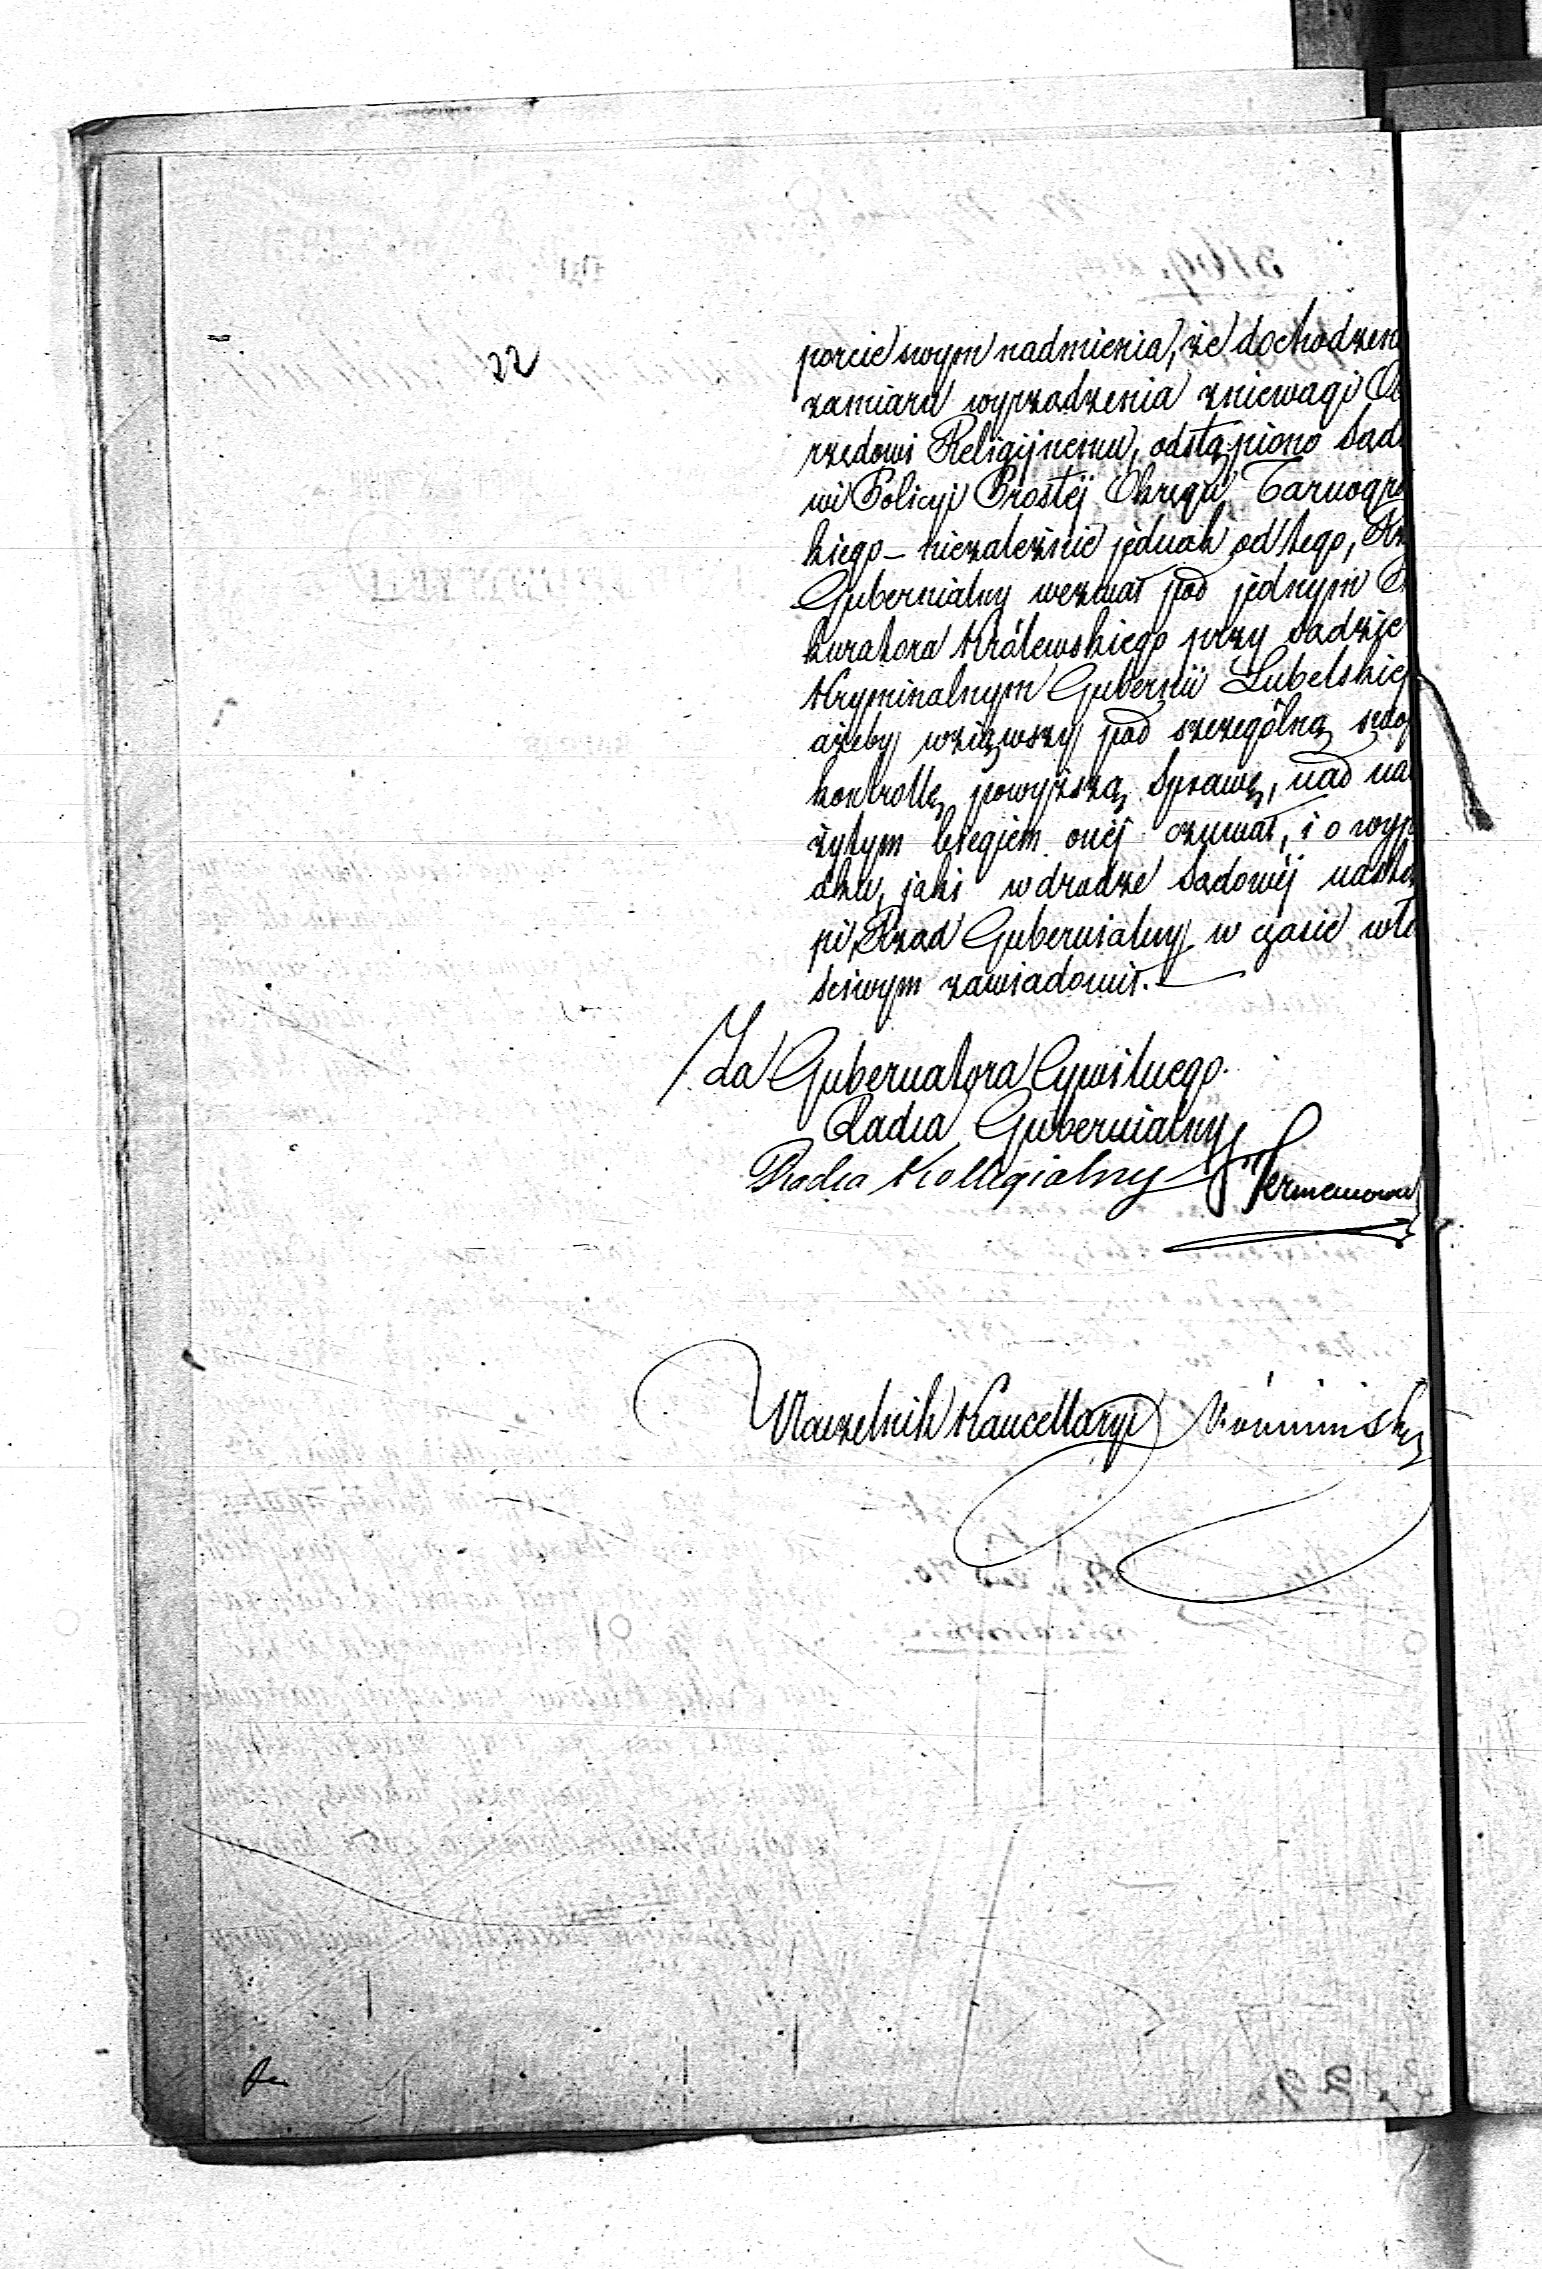 22
porcie swym nadmienia, że dochodzen
zamiaru wyrządzenia zniewagi Ob
rzędowi Religijnemu, odstąpiono Sądo
wi Policyi Prostéj Okręgu Tarnogro
kiego – niezależnie jednak od tego, Rz
Gubernialny wezwał pod jednym P
kuratora Królewskiego przy Sądzie
Kryminalnym Gubernii Lubelskiej
ażeby wziąwszy pod szczególną swo
kontrollę powyższą Sprawę, nad na
żytym biegiem onéj czuwał, i o wyp
dku, jaki w drodze Sądowéj nastą
pi, Rząd Gubernialny w czasie wła
ściwym zawiadomił.
Za Gubernatora Cywilnego.
Radca Gubernialny
Radca Kollegialny
Naczelnik Kancellaryi